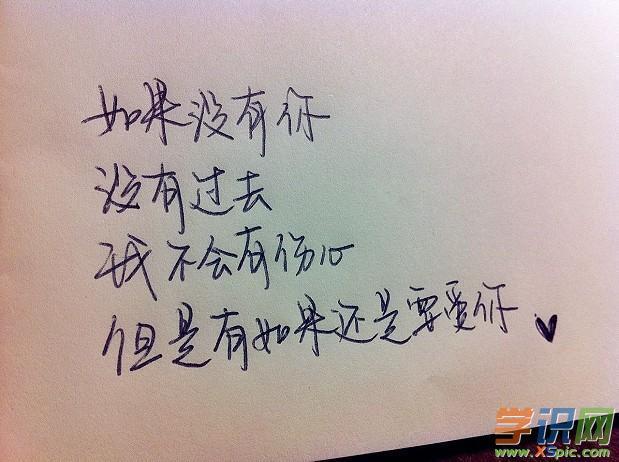 如果没有你
没有过去
我不会有伤心
但是有如果还是要爱你
学识网
www.XSpic.com